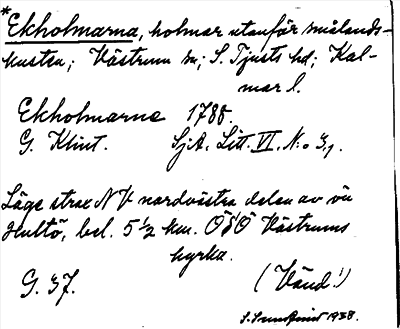 *Ekholmarna, holmar utanför smålands-
kusten; Västrum sn; S. Tjusts hd; Kal-
mar l.
Ekholmarne 1788.
G. Klint. SjA. Litt. VI. N:o 3,.
Läge strax NV nordvästra delen av ön
Hultö, bel. 5 1/2 km. OSO Västrums
kyrka.
G. 37. (Vänd!)
1938.